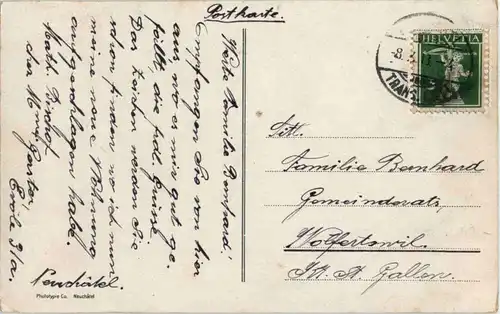 Postkarte.
HELVETIA
Werte Familie Bernhard!
Empfangen Sie von hier
aus, wo es mir gut ge-
fällt, die frdl. Grüsse
Das Zeichen werden Sie
schon finden, wo ich nun
meine neue Wohnung
aufgeschlagen habe.
Math. Bischof
Neuchâtel.
Phototypie Co. Neuchâtel
Tit.
Familie Bernhard
Gemeinderats
Wolfertswil.
Kt. St. Gallen.